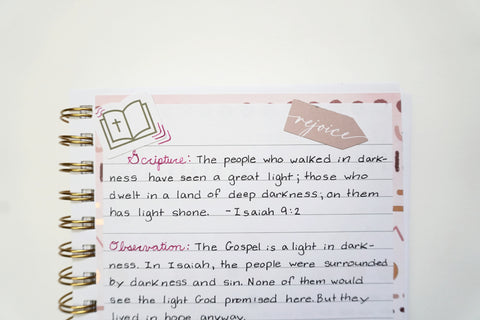 rejoice
Scripture: The people who walked in dark-
ness have seen a great light; those who
dwelt in a land of deep darkness, on them
has light shone. - Isaiah 9:2
Observation: The Gospel is a light in dark-
ness. In Isaiah, the people were surrounded
by darkness and sin. None of them would
see the light God promised here. But they
lived in hope anyway.